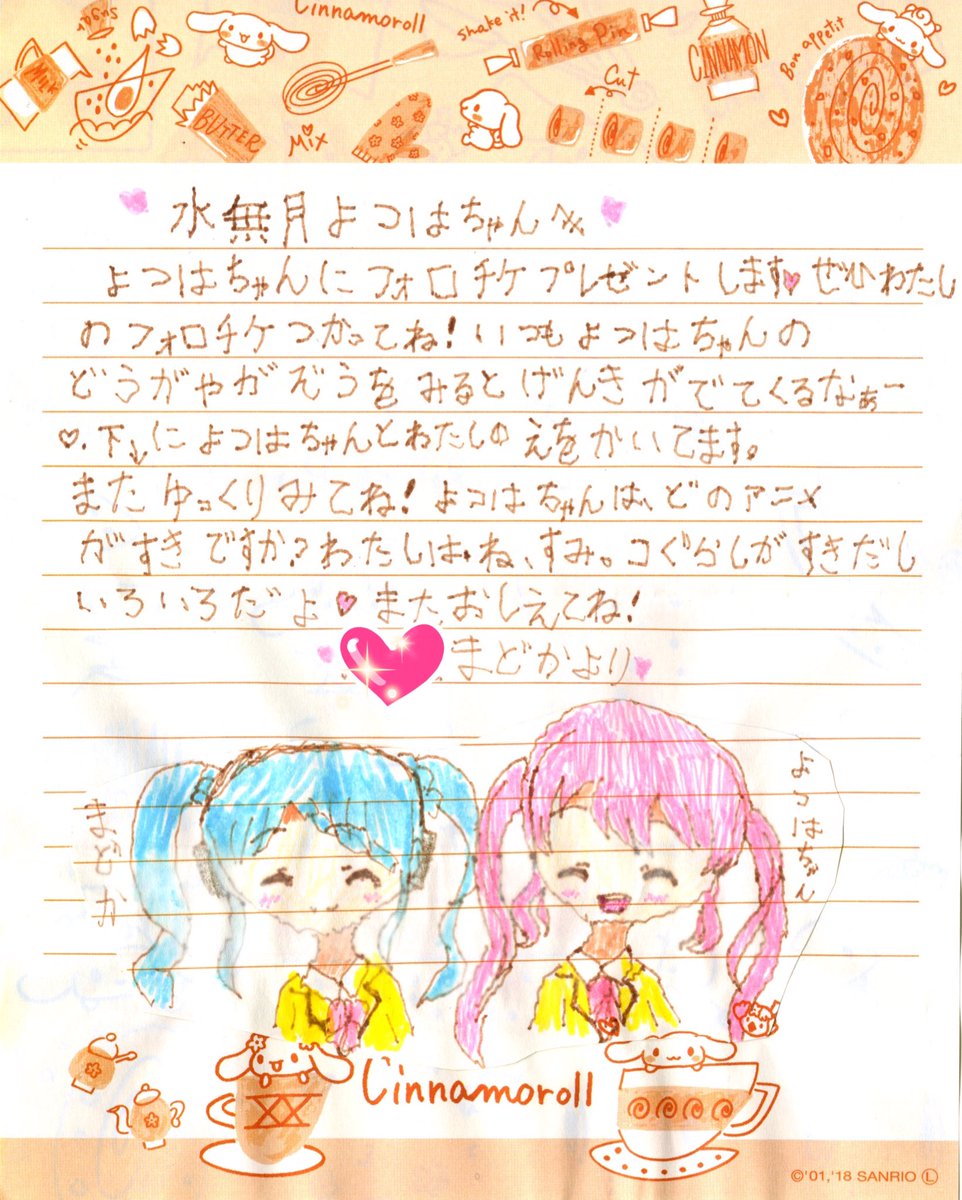 Cinnamoroll
Sugar
Milk
BUTTER
Mix
shake it!
Rolling Pin
Cut
CINNAMON
Bon appetit
水無月よつはちゃんへ
よつはちゃんにフォロチケプレゼントします♥ぜひわたし
のフォロチケつかってね!いつもよつはちゃんの
どうがやがぞうをみるとげんきがでてくるなぁー
♡.下↓によつはちゃんとわたしのえをかいてます。
またゆっくりみてね!よつはちゃんは、どのアニメ
がすきですか?わたしはね、すみ。コぐらしがすきだし
いろいろだよ♥またおしえてね!
まどかより
まどか
よつはちゃん
Cinnamoroll
©'01,'18 SANRIO Ⓛ